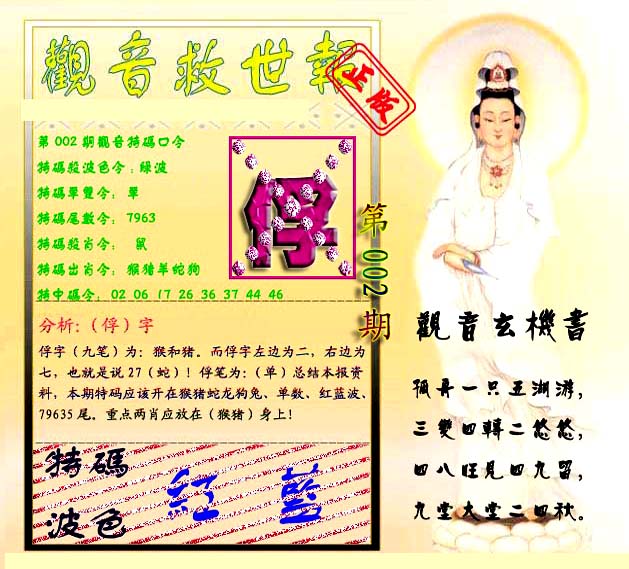 觀音救世報
正版
第002期觀音特碼口令
特碼殺波色令：綠波
特碼單雙令： 單
特碼尾數令： 7963
特碼殺肖令： 鼠
特碼出肖令： 猴猪羊蛇狗
特中碼令： 02 06 17 26 36 37 44 46
俘
第002期
分析:（俘）字
俘字（九笔）为：猴和猪。而俘字左边为二，右边为
七，也就是说27（蛇）！俘笔为：（单）总结本报资
料，本期特码应该开在猴猪蛇龙狗兔、单数、红蓝波、
79635尾。重点两肖应放在（猴猪）身上！
特碼
波色
紅 藍
觀音玄機書
孤舟一只五湖游，
三變四轉二悠悠，
四八旺見四九留，
九堂大堂二四秋。